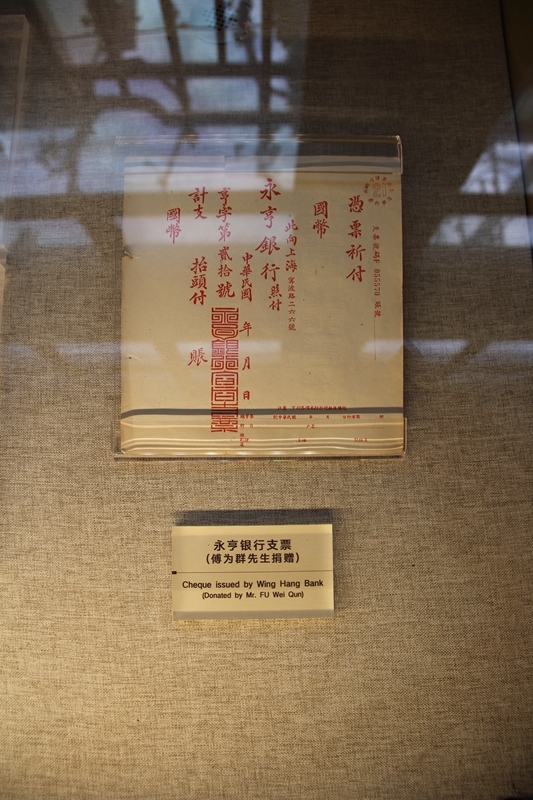 憑票祈付
支票號碼F 055570 賬號
國幣
此向上海寗波路二六六號
永亨銀行照付
中華民國 年 月 日
亨字第貳拾號
計支 抬頭付 賬
國幣
永亨银行支票
(傅为群先生捐赠)
Cheque issued by Wing Hang Bank
(Donated by Mr. FU Wei Qun)